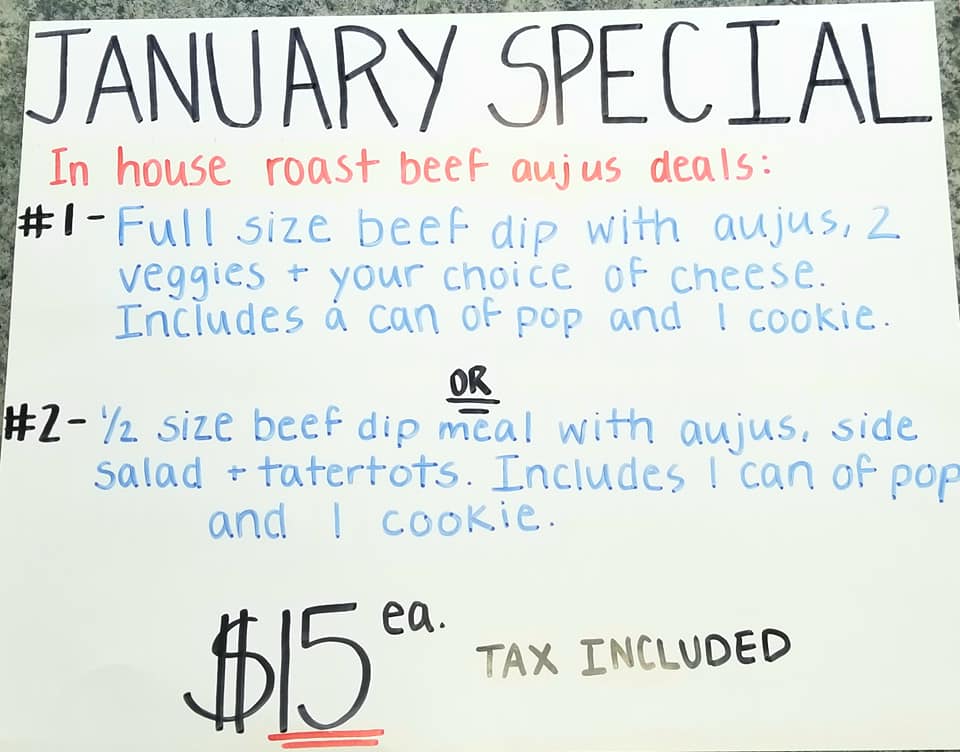 JANUARY SPECIAL
In house roast beef aujus deals:
#1- Full size beef dip with aujus, 2
veggies + your choice of cheese.
Includes a can of pop and 1 cookie.
OR
#2- 1/2 size beef dip meal with aujus, side
salad + tatertots. Includes 1 can of pop
and 1 cookie.
$15 ea. TAX INCLUDED